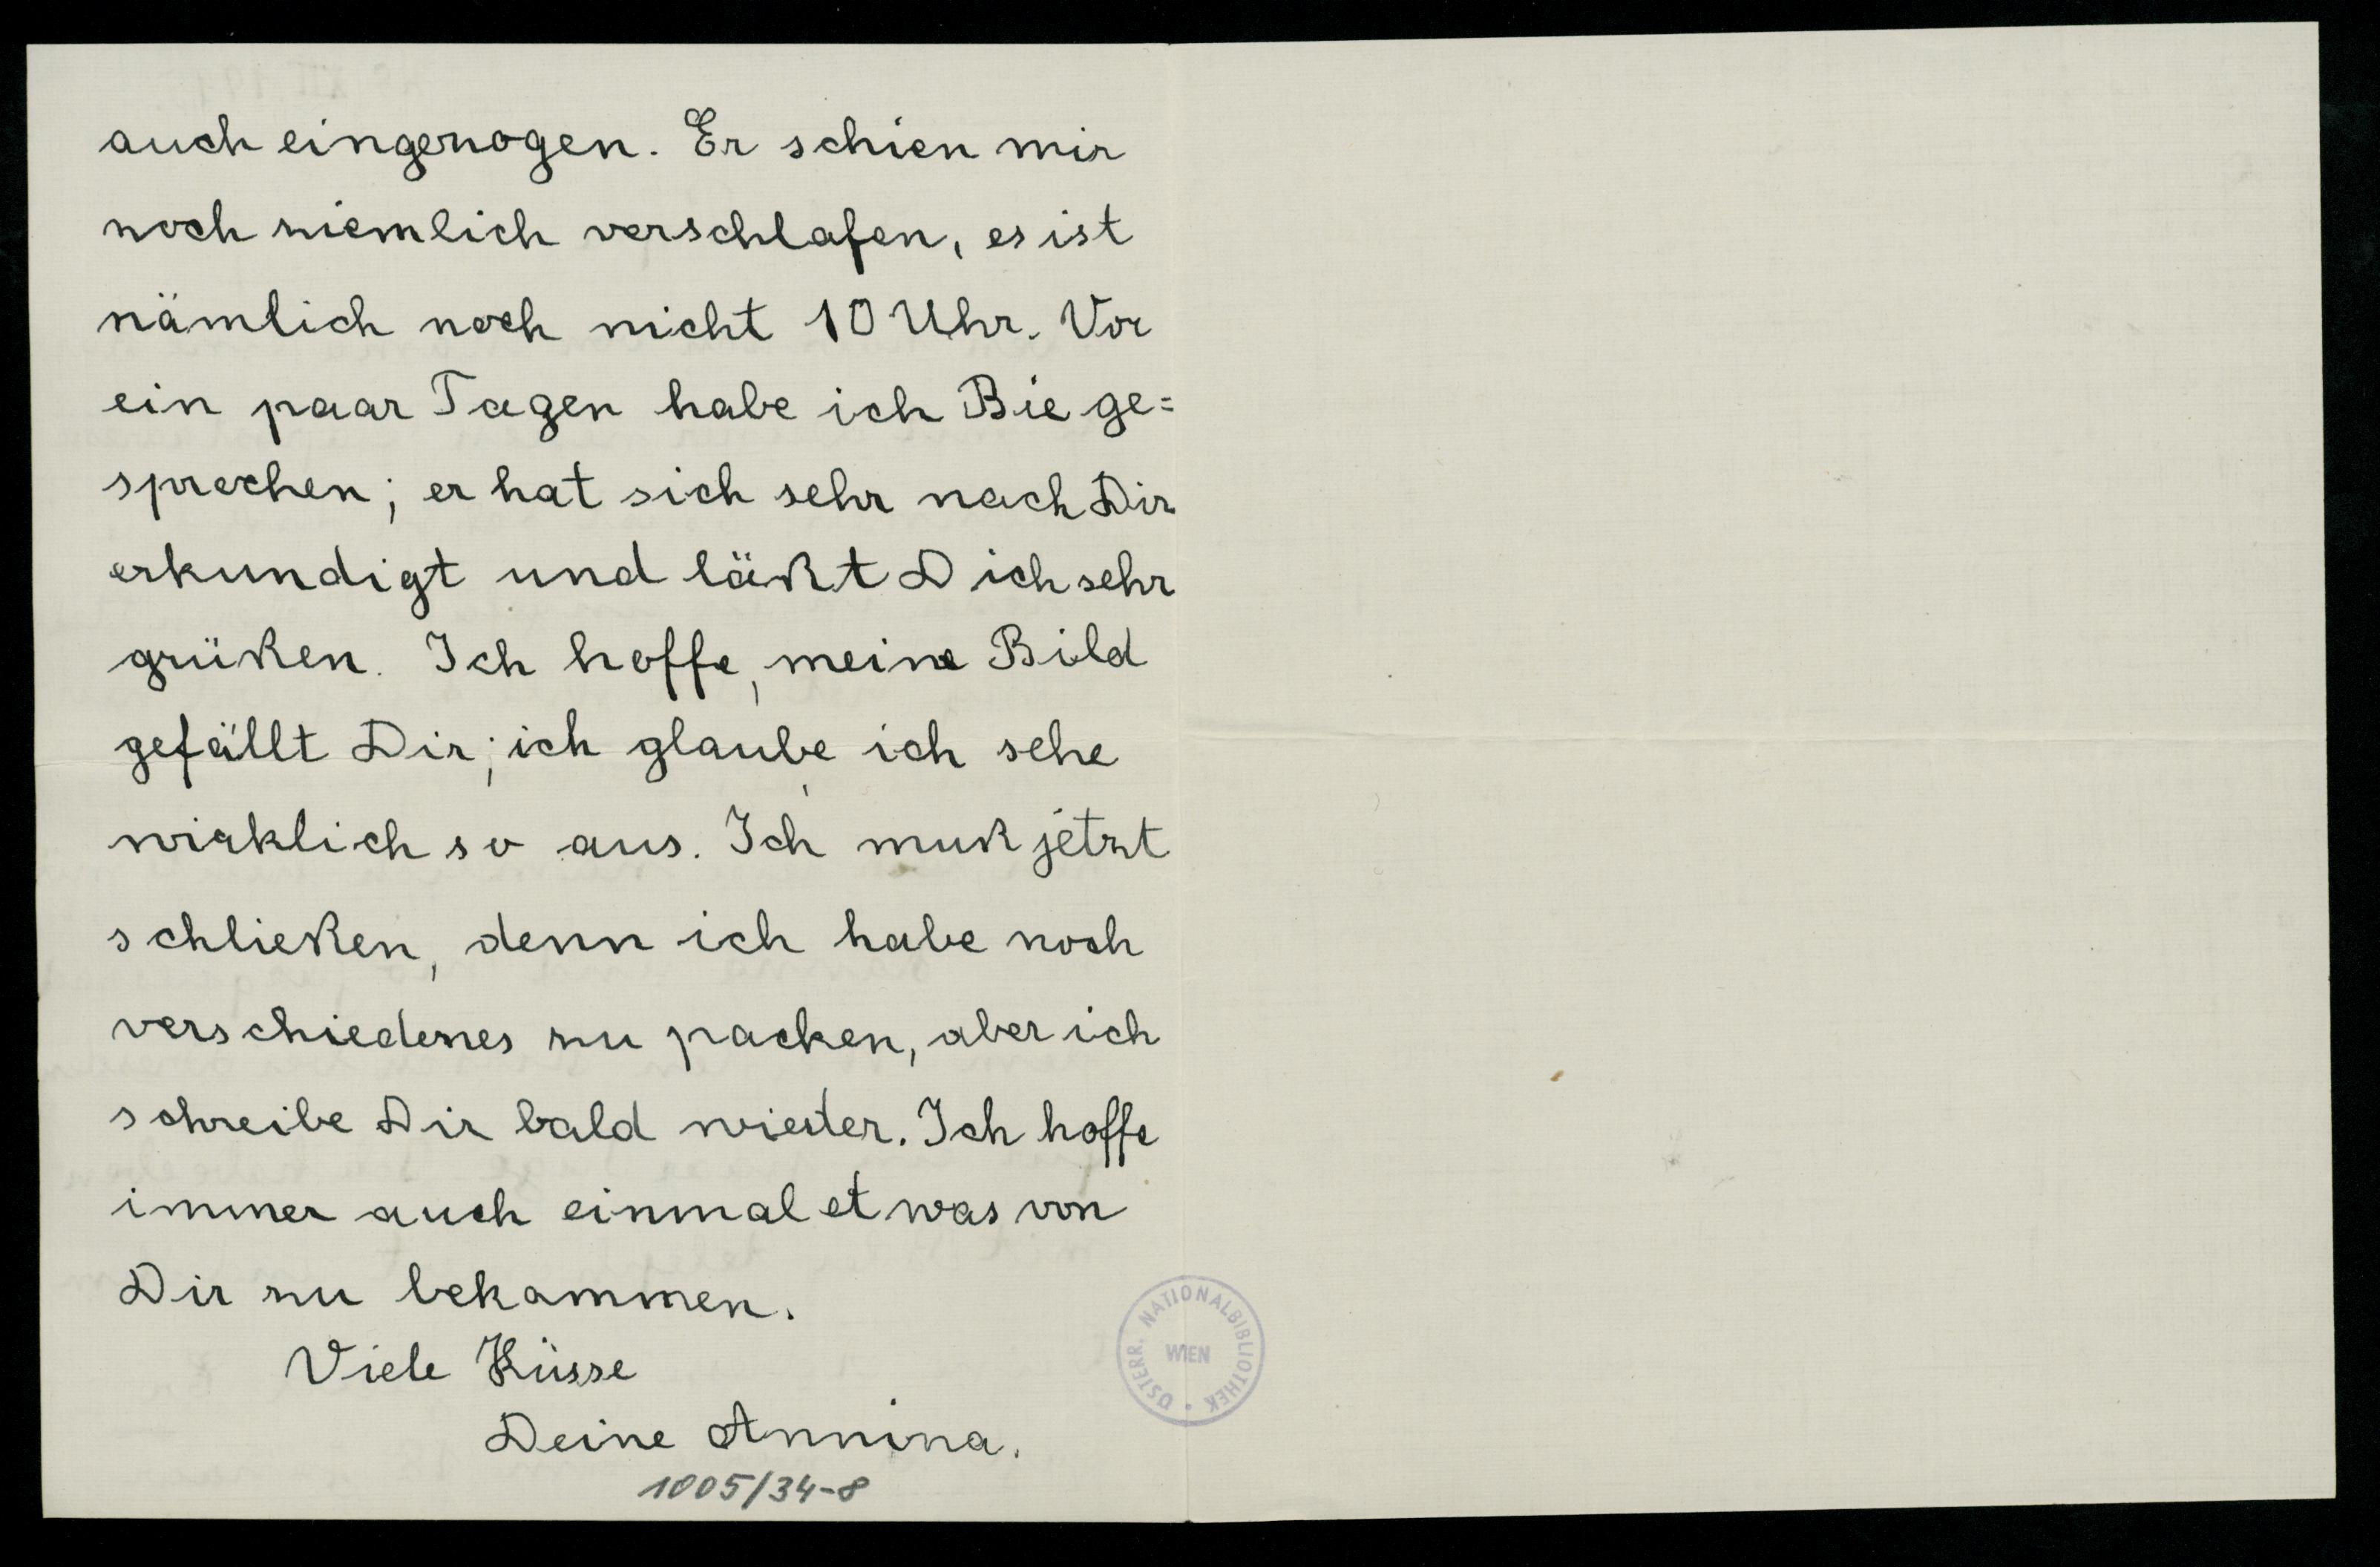 auch eingezogen. Er schien mir
noch ziemlich verschlafen, es ist
nämlich noch nicht 10 Uhr. Vor
ein paar Tagen habe ich Bie ge=
sprochen; er hat sich sehr nach Dir
erkundigt und läßt Dich sehr
grüßen. Ich hoffe, meine Bild
gefällt Dir; ich glaube, ich sehe
wirklich so aus. Ich muß jetzt
schließen, denn ich habe noch
verschiedenes zu packen, aber ich
schreibe Dir bald wieder. Ich hoffe
immer auch einmal etwas von
Dir zu bekommen.
Viele Küsse
Deine Annina.
1005/34-8
ÖSTERR. NATIONALBIBLIOTHEK
WIEN